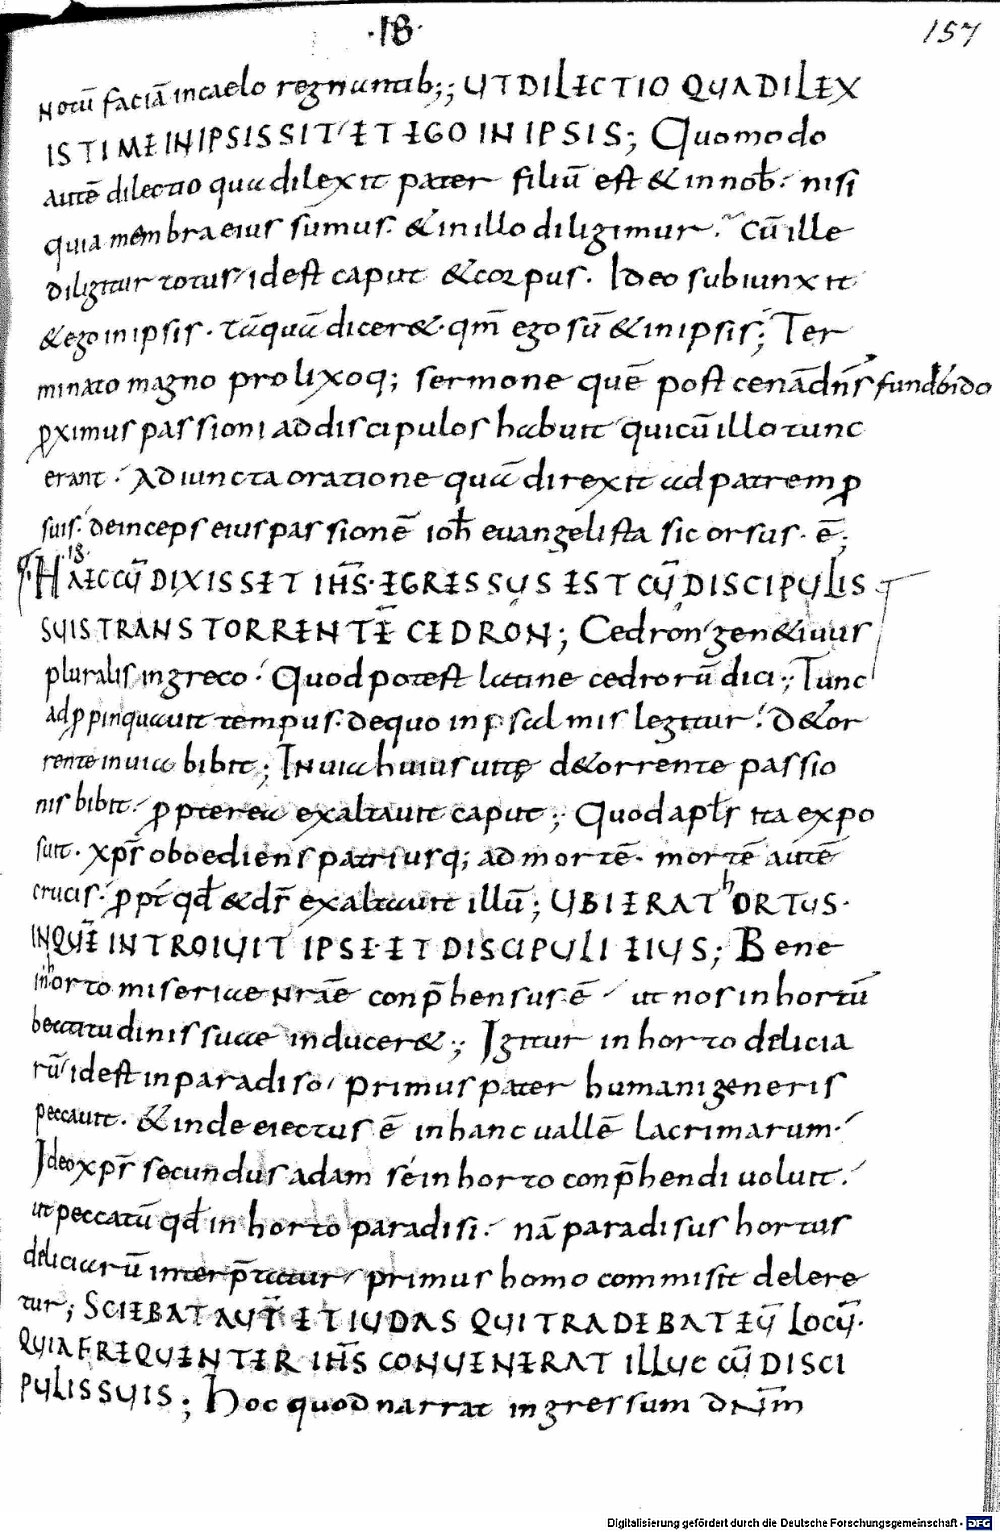 ·18·
157
notū faciā in caelo regnantib;; UT DILECTIO QUA DILEX
ISTI ME IN IPSIS SIT ET EGO IN IPSIS; Quomodo
autē dilectio qua dilexit pater filiū est & in nob. nisi
quia membra eius sumus. & in illo diligimur. Cū ille
diligitur totus id est caput & corpus. Ideo subiunxit
& ego in ipsis. tāquā dicer&. qm̄ ego sū & in ipsis; Ter
minato magno prolixoq; sermone quē post cenā dn̄s fundendo
ꝓximus passioni ad discipulos habuit qui cū illo tunc
erant. Adiuncta oratione quā direxit ad patrem ꝓ
suis. deinceps eius passionē ioh̄ euangelista sic orsus. ē;
·18·
HAEC CŪ DIXISSET IH̄S. EGRESSUS EST CŪ DISCIPULIS
SUIS TRANS TORRENTĒ CEDRON; Cedron gen&iuus
pluralis in greco. Quod potest latine cedrorū dici; Tunc
adꝓpinquauit tempus. de quo in psalmis legitur. D&or
rente in uia bibit; In uia huius uitę d&orrente passio
nis bibit. ꝓpterea exaltauit caput; Quod apl̄s ita expo
suit. xp̄s oboediens patri usq; ad mortē. mortē autē
crucis. ꝓpt qd̄ & ds̄ exaltauit illū; UBI ERAT hORTUS.
IN QUĒ INTROIUIT IPSE ET DISCIPULI EIUS; Bene
in horto miseriae nr̄ae con p̄hensus ē ut nos in hortū
beatitudinis suae inducer&; Igitur in horto delicia
rū id est in paradiso primus pater humani generis
peccauit. & inde eiectus ē in hanc uallē lacrimarum.
Ideo xp̄s secundus adam se in horto con p̄hendi uoluit.
ut peccatū qd̄ in horto paradisi. nā paradisus hortus
deliciarū inter p̄tatur primus homo commisit delere
tur; SCIEBAT AUT̄ ET IUDAS QUI TRADEBAT EŪ LOCŪ.
QUIA FREQUENTER IH̄S CONUENERAT ILLUC CŪ DISCI
PULIS SUIS; hoc quod narrat ingressum dn̄m
Digitalisierung gefördert durch die Deutsche Forschungsgemeinschaft - DFG